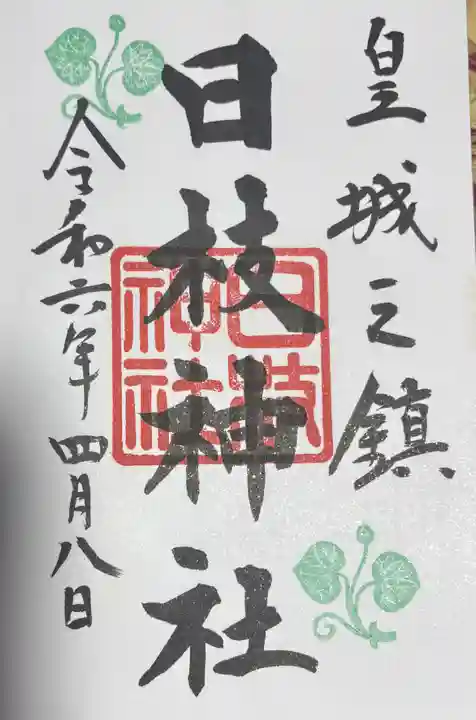 皇城之鎮
日枝神社
日枝神社
令和六年四月八日